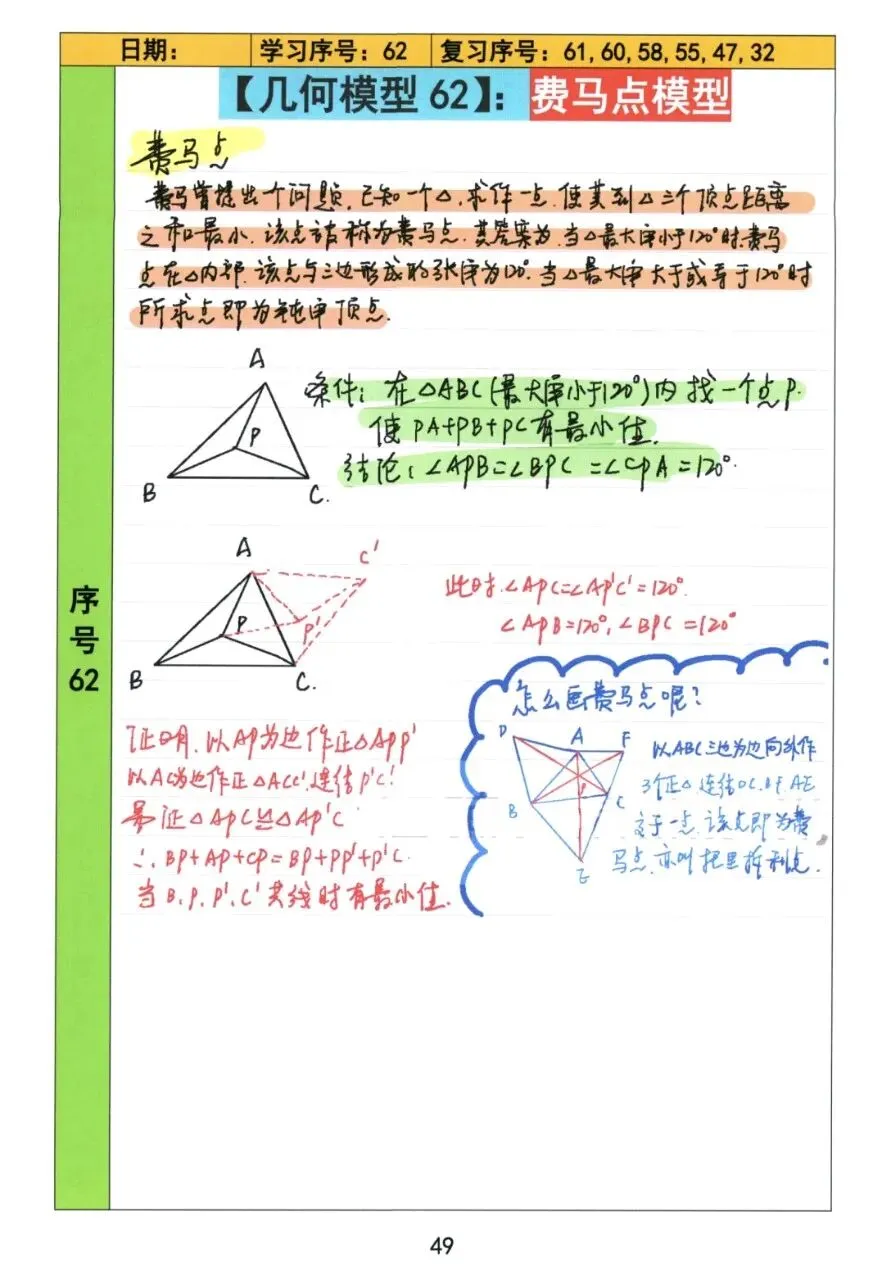 日期：
学习序号：62
复习序号：61,60,58,55,47,32
【几何模型 62】：费马点模型
费马点
费马曾提出个问题，已知一个△，求作一点，使其到△三个顶点距离
之和最小，该点被称为费马点，其答案为，当△最大角小于120°时，费马
点在△内部，该点与三边形成的张角为120°，当△最大角大于或等于120°时
所求点即为钝角顶点.
A
P
B
C.
条件：在△ABC(最大角小于120°)内找一个点P.
使PA+PB+PC有最小值.
结论：∠APB=∠BPC=∠CPA=120°.
A
C'
P
P'
B
C.
此时.∠APC=∠AP'C'=120°.
∠APB=120°,∠BPC=120°
序号62
证明.以AP为边作正△APP'
以AC为边作正△ACC'.连结P'C'
易证△APC≌△AP'C'
∴BP+AP+CP=BP+PP'+P'C'.
当B.P.P'.C'共线时有最小值.
怎么画费马点呢？
D
A
F
B
P
C
E
以ABC三边为边向外作
3个正△连结DC.BF.AE
交于一点.该点即为费
马点.亦叫托里拆利点.
49